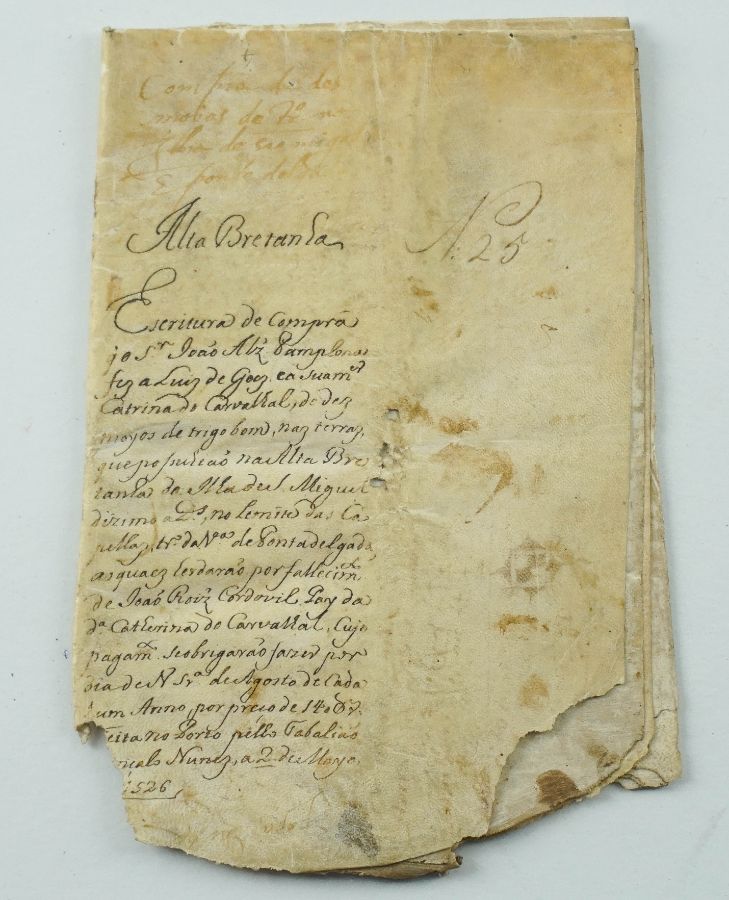 Compra de des
moios de tº na
Ilha de são migel
E ponte delgada
Alta Bretanha
N. 25
Escritura de Compra
q̃ o Sr. João Alz̃ Pamplona
fez a Luiz de Goez, e a sua mer.
Catrina do Carvalhal, de dez
moyos de trigo bom, nas terras,
que possuião na Alta Bre
tanha da Ilha de S. Miguel
dizimo a Ds, no lemite das Ca
pellas, tro. da Va. de Ponta delgada,
as quaez herdarão por fallecimto.
de João Roiz Cordovil, Pay da
da. Catherina do Carvalhal, Cujo
pagamto. se obrigarão fazer por
dia de N Sra. de Agosto de Cada
um Anno, por preço de
feita no Porto pello Tabalião
Nunez, a 2 de Mayo
1526